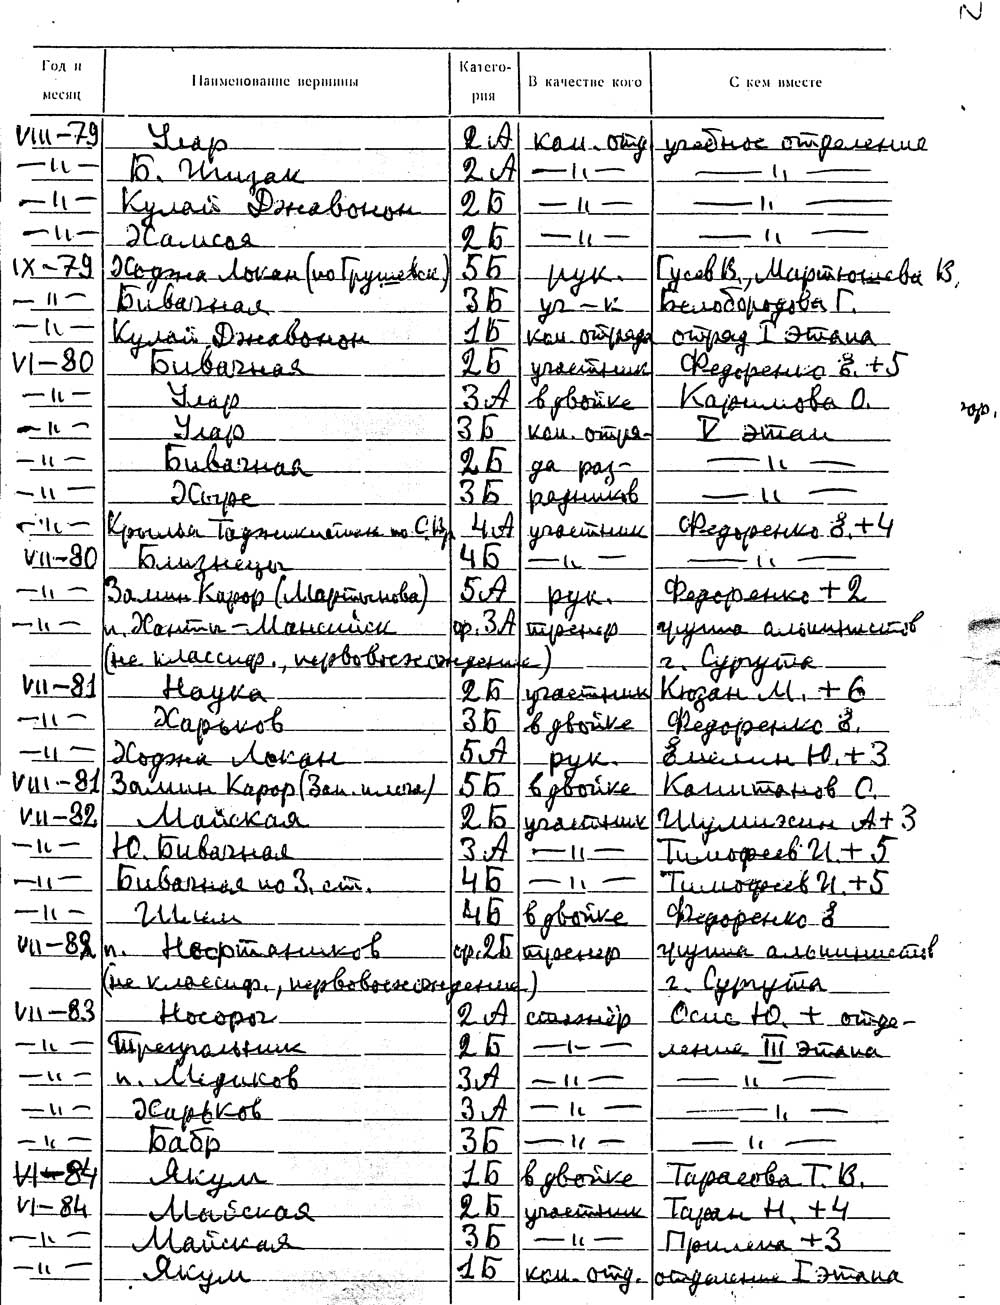 Год и месяц Наименование вершины Катего-рия В качестве кого С кем вместе
VIII-79 Улар 2А ком. отд учебное отделение
—"— Б. Игизак 2А —"— —"—
—"— Кулай Джавонон 2Б —"— —"—
—"— 2Б —"— —"—
IX-79 Ходжа Локан (по Грушевск) 5Б рук. Гусев В., Мартюшева В,
—"— Бивачная 3Б уч-к Белобородова Г.
—"— Кулай Джавонон 1Б ком. отряда отряд I этапа
VI-80 Бивачная 2Б участник Федоренко Э. +5
—"— Улар 3А в двойке Каримова О.
гор.
—"— Улар 3Б ком. отря- V этап
—"— Бивачная 2Б да раз- —"—
—"— 3Б рядников —"—
—"— Крылья Таджикистан по С.Вр 4А участник Федоренко Э. +4
VII-80 Близнецы 4Б —"— —"—
—"— Замин Карор (Мартынова) 5А рук. Федоренко +2
—"— п. Ханты-Мансийск ор. 3А тренер группа альпинистов
(не классиф., первовосхождение) г. Сургута
VII-81 Наука 2Б участник Кюзан М. +6
—"— Харьков 3Б в двойке Федоренко Э.
—"— Ходжа Локан 5А рук. Емелин Ю. +3
VIII-81 Замин Карор (Зап. плечо) 5Б в двойке Капитанов С.
VII-82 Майская 2Б участник Шумихин А +3
—"— Ю. Бивачная 3А —"— Тимофеев И. +5
—"— Бивачная по З. ст. 4Б —"— Тимофеев И. +5
—"— Шлем 4Б в двойке Федоренко Э
VII-82 п. Нефтяников ор. 2Б тренер группа альпинистов
(не классиф., первовосхождение) г. Сургута
VII-83 Носорог 2А стажёр Осис Ю. + отде-
—"— Треугольник 2Б —"— ление III этапа
—"— п. Медиков 3А —"— —"—
—"— Харьков 3А —"— —"—
—"— Бабр 3Б —"— —"—
VI-84 Якум 1Б в двойке Тарасова Т. В.
VI-84 Майская 2Б участник Таран Н. +4
—"— Майская 3Б —"— Прилепа +3
—"— Якум 1Б ком. отд. отделение I этапа